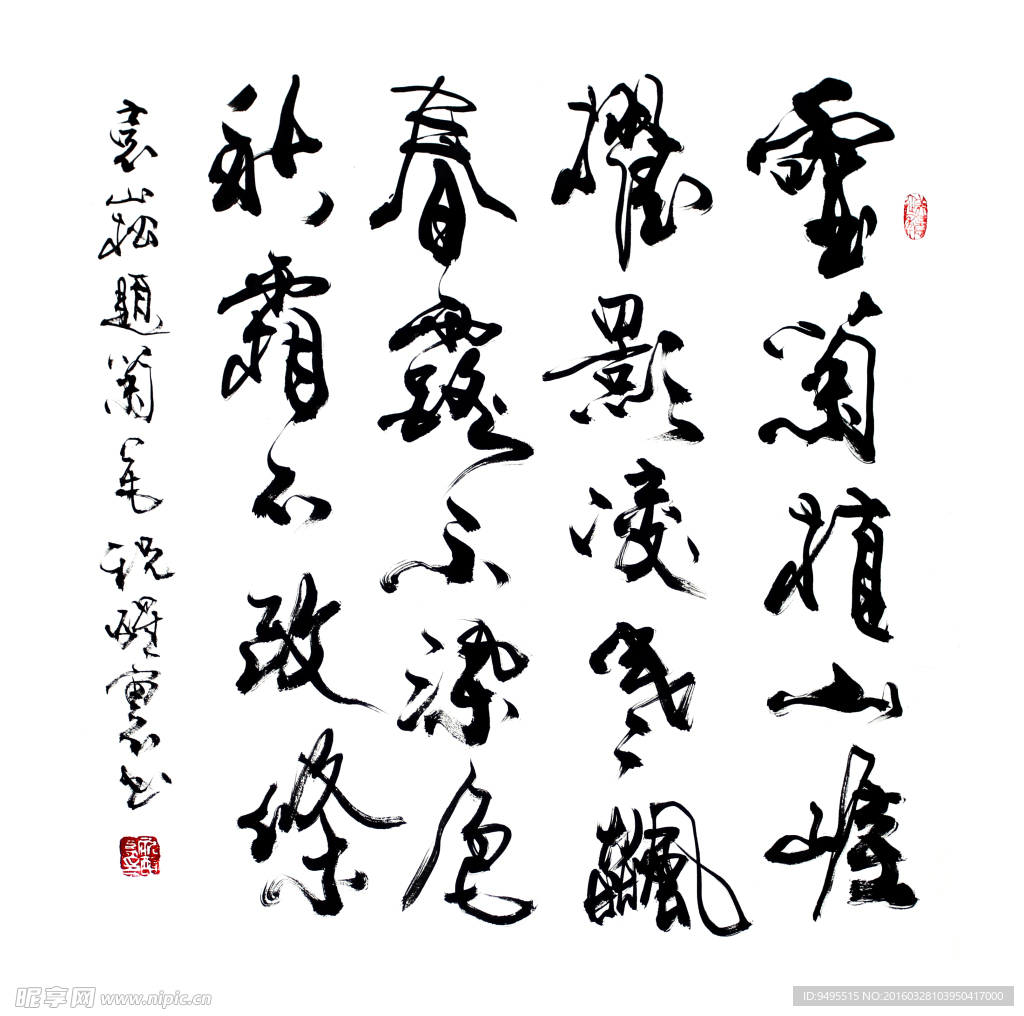 靈蘭植山崖
擢影凌寒飆
春露不染色
秋霜不改條
袁山松題蘭 祝醒寰書
昵享网 www.nipic.cn
ID:9495515 NO:20160328103950417000